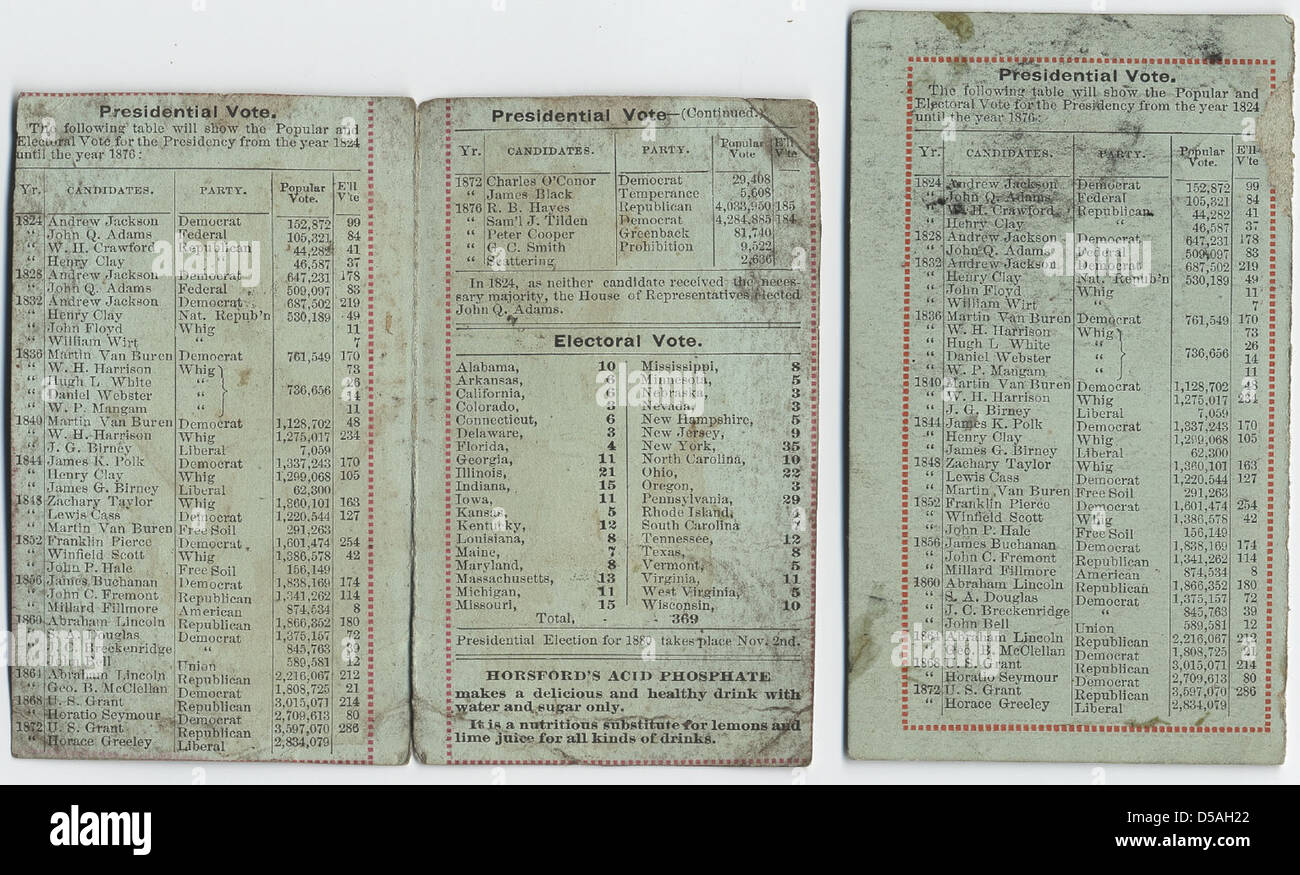 Presidential Vote.
The following table will show the Popular and
Electoral Vote for the Presidency from the year 1824
until the year 1876:
Yr. CANDIDATES. PARTY. Popular Vote. E'll V'te
1824 Andrew Jackson Democrat 152,872 99
" John Q. Adams Federal 105,321 84
" W. H. Crawford Republican 44,282 41
" Henry Clay " 46,587 37
1828 Andrew Jackson Democrat 647,231 178
" John Q. Adams Federal 509,097 83
1832 Andrew Jackson Democrat 687,502 219
" Henry Clay Nat. Repub'n 530,189 49
" John Floyd Whig 11
" William Wirt " 7
1836 Martin Van Buren Democrat 761,549 170
" W. H. Harrison Whig 73
" Hugh L White " 26
" Daniel Webster " 736,656 14
" W. P. Mangam " 11
1840 Martin Van Buren Democrat 1,128,702 48
" W. H. Harrison Whig 1,275,017 234
" J. G. Birney Liberal 7,059
1844 James K. Polk Democrat 1,337,243 170
" Henry Clay Whig 1,299,068 105
" James G. Birney Liberal 62,300
1848 Zachary Taylor Whig 1,360,101 163
" Lewis Cass Democrat 1,220,544 127
" Martin Van Buren Free Soil 291,263
1852 Franklin Pierce Democrat 1,601,474 254
" Winfield Scott Whig 1,386,578 42
" John P. Hale Free Soil 156,149
1856 James Buchanan Democrat 1,838,169 174
" John C. Fremont Republican 1,341,262 114
" Millard Fillmore American 874,534 8
1860 Abraham Lincoln Republican 1,866,352 180
" S. A. Douglas Democrat 1,375,157 72
" J. C. Breckenridge " 845,763 39
" John Bell Union 589,581 12
1864 Abraham Lincoln Republican 2,216,067 212
" Geo. B. McClellan Democrat 1,808,725 21
1868 U. S. Grant Republican 3,015,071 214
" Horatio Seymour Democrat 2,709,613 80
1872 U. S. Grant Republican 3,597,070 286
" Horace Greeley Liberal 2,834,079
Presidential Vote—(Continued.)
Yr. CANDIDATES. PARTY. Popular Vote E'll V'te
1872 Charles O'Conor Democrat 29,408
" James Black Temperance 5,608
1876 R. B. Hayes Republican 4,033,950 185
" Sam'l J. Tilden Democrat 4,284,885 184
" Peter Cooper Greenback 81,740
" G. C. Smith Prohibition 9,522
" Scattering 2,636
In 1824, as neither candidate received the neces-
sary majority, the House of Representatives elected
John Q. Adams.
Electoral Vote.
Alabama, 10 Mississippi, 8
Arkansas, 6 Minnesota, 5
California, 6 Nebraska, 3
Colorado, 3 Nevada, 3
Connecticut, 6 New Hampshire, 5
Delaware, 3 New Jersey, 9
Florida, 4 New York, 35
Georgia, 11 North Carolina, 10
Illinois, 21 Ohio, 22
Indiana, 15 Oregon, 3
Iowa, 11 Pennsylvania, 29
Kansas, 5 Rhode Island, 4
Kentucky, 12 South Carolina 7
Louisiana, 8 Tennessee, 12
Maine, 7 Texas, 8
Maryland, 8 Vermont, 5
Massachusetts, 13 Virginia, 11
Michigan, 11 West Virginia, 5
Missouri, 15 Wisconsin, 10
Total, - - 369
Presidential Election for 1880 takes place Nov. 2nd.
HORSFORD'S ACID PHOSPHATE
makes a delicious and healthy drink with
water and sugar only.
It is a nutritious substitute for lemons and
lime juice for all kinds of drinks.
Presidential Vote.
The following table will show the Popular and
Electoral Vote for the Presidency from the year 1824
until the year 1876:
Yr. CANDIDATES. PARTY. Popular Vote. E'll V'te
1824 Andrew Jackson Democrat 152,872 99
" John Q. Adams Federal 105,321 84
" W. H. Crawford Republican 44,282 41
" Henry Clay " 46,587 37
1828 Andrew Jackson Democrat 647,231 178
" John Q. Adams Federal 509,097 83
1832 Andrew Jackson Democrat 687,502 219
" Henry Clay Nat. Repub'n 530,189 49
" John Floyd Whig 11
" William Wirt " 7
1836 Martin Van Buren Democrat 761,549 170
" W. H. Harrison Whig 73
" Hugh L White " 26
" Daniel Webster " 736,656 14
" W. P. Mangam " 11
1840 Martin Van Buren Democrat 1,128,702 48
" W. H. Harrison Whig 1,275,017 234
" J. G. Birney Liberal 7,059
1844 James K. Polk Democrat 1,337,243 170
" Henry Clay Whig 1,299,068 105
" James G. Birney Liberal 62,300
1848 Zachary Taylor Whig 1,360,101 163
" Lewis Cass Democrat 1,220,544 127
" Martin Van Buren Free Soil 291,263
1852 Franklin Pierce Democrat 1,601,474 254
" Winfield Scott Whig 1,386,578 42
" John P. Hale Free Soil 156,149
1856 James Buchanan Democrat 1,838,169 174
" John C. Fremont Republican 1,341,262 114
" Millard Fillmore American 874,534 8
1860 Abraham Lincoln Republican 1,866,352 180
" S. A. Douglas Democrat 1,375,157 72
" J. C. Breckenridge 845,763 39
" John Bell Union 589,581 12
1864 Abraham Lincoln Republican 2,216,067 212
" Geo. B. McClellan Democrat 1,808,725 21
1868 U. S. Grant Republican 3,015,071 214
" Horatio Seymour Democrat 2,709,613 80
1872 U. S. Grant Republican 3,597,070 286
" Horace Greeley Liberal 2,834,079
alamy
Image ID: D5AH22
www.alamy.com